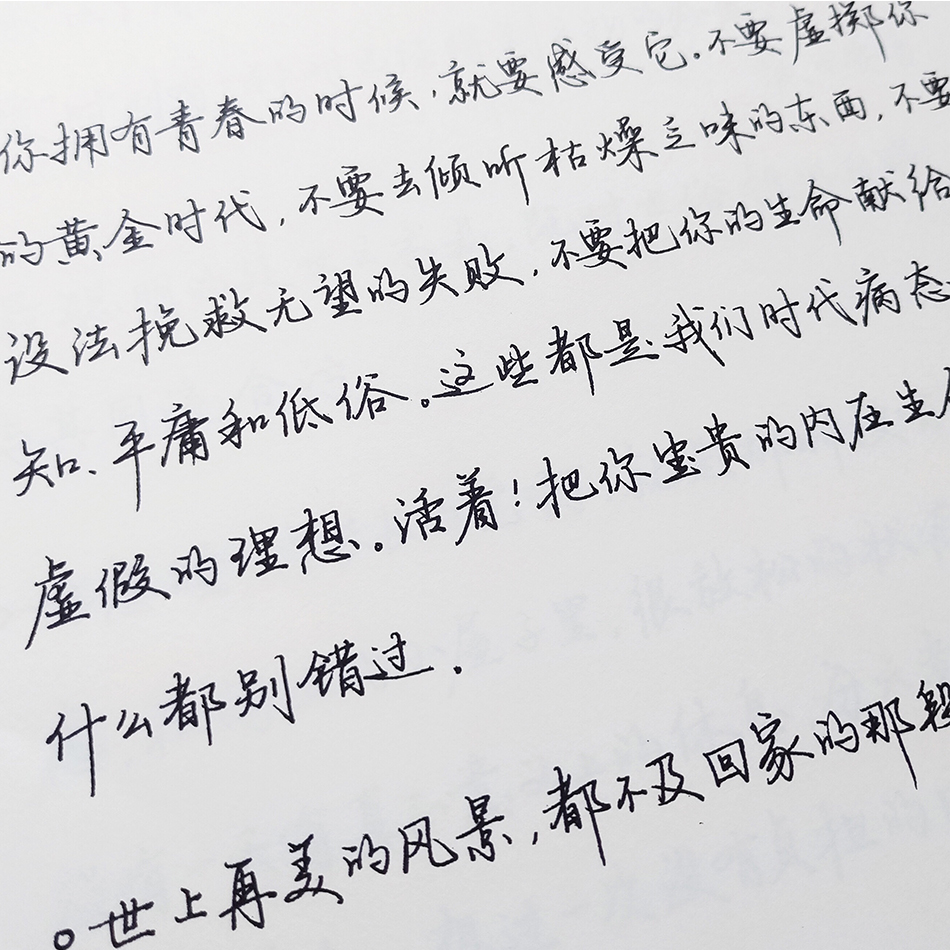 你拥有青春的时候,就要感受它。不要虚掷你
的黄金时代,不要去倾听枯燥乏味的东西,不要
设法挽救无望的失败,不要把你的生命献给
知、平庸和低俗。这些都是我们时代病态
虚假的理想。活着!把你宝贵的内在生
什么都别错过.
。世上再美的风景,都不及回家的那段